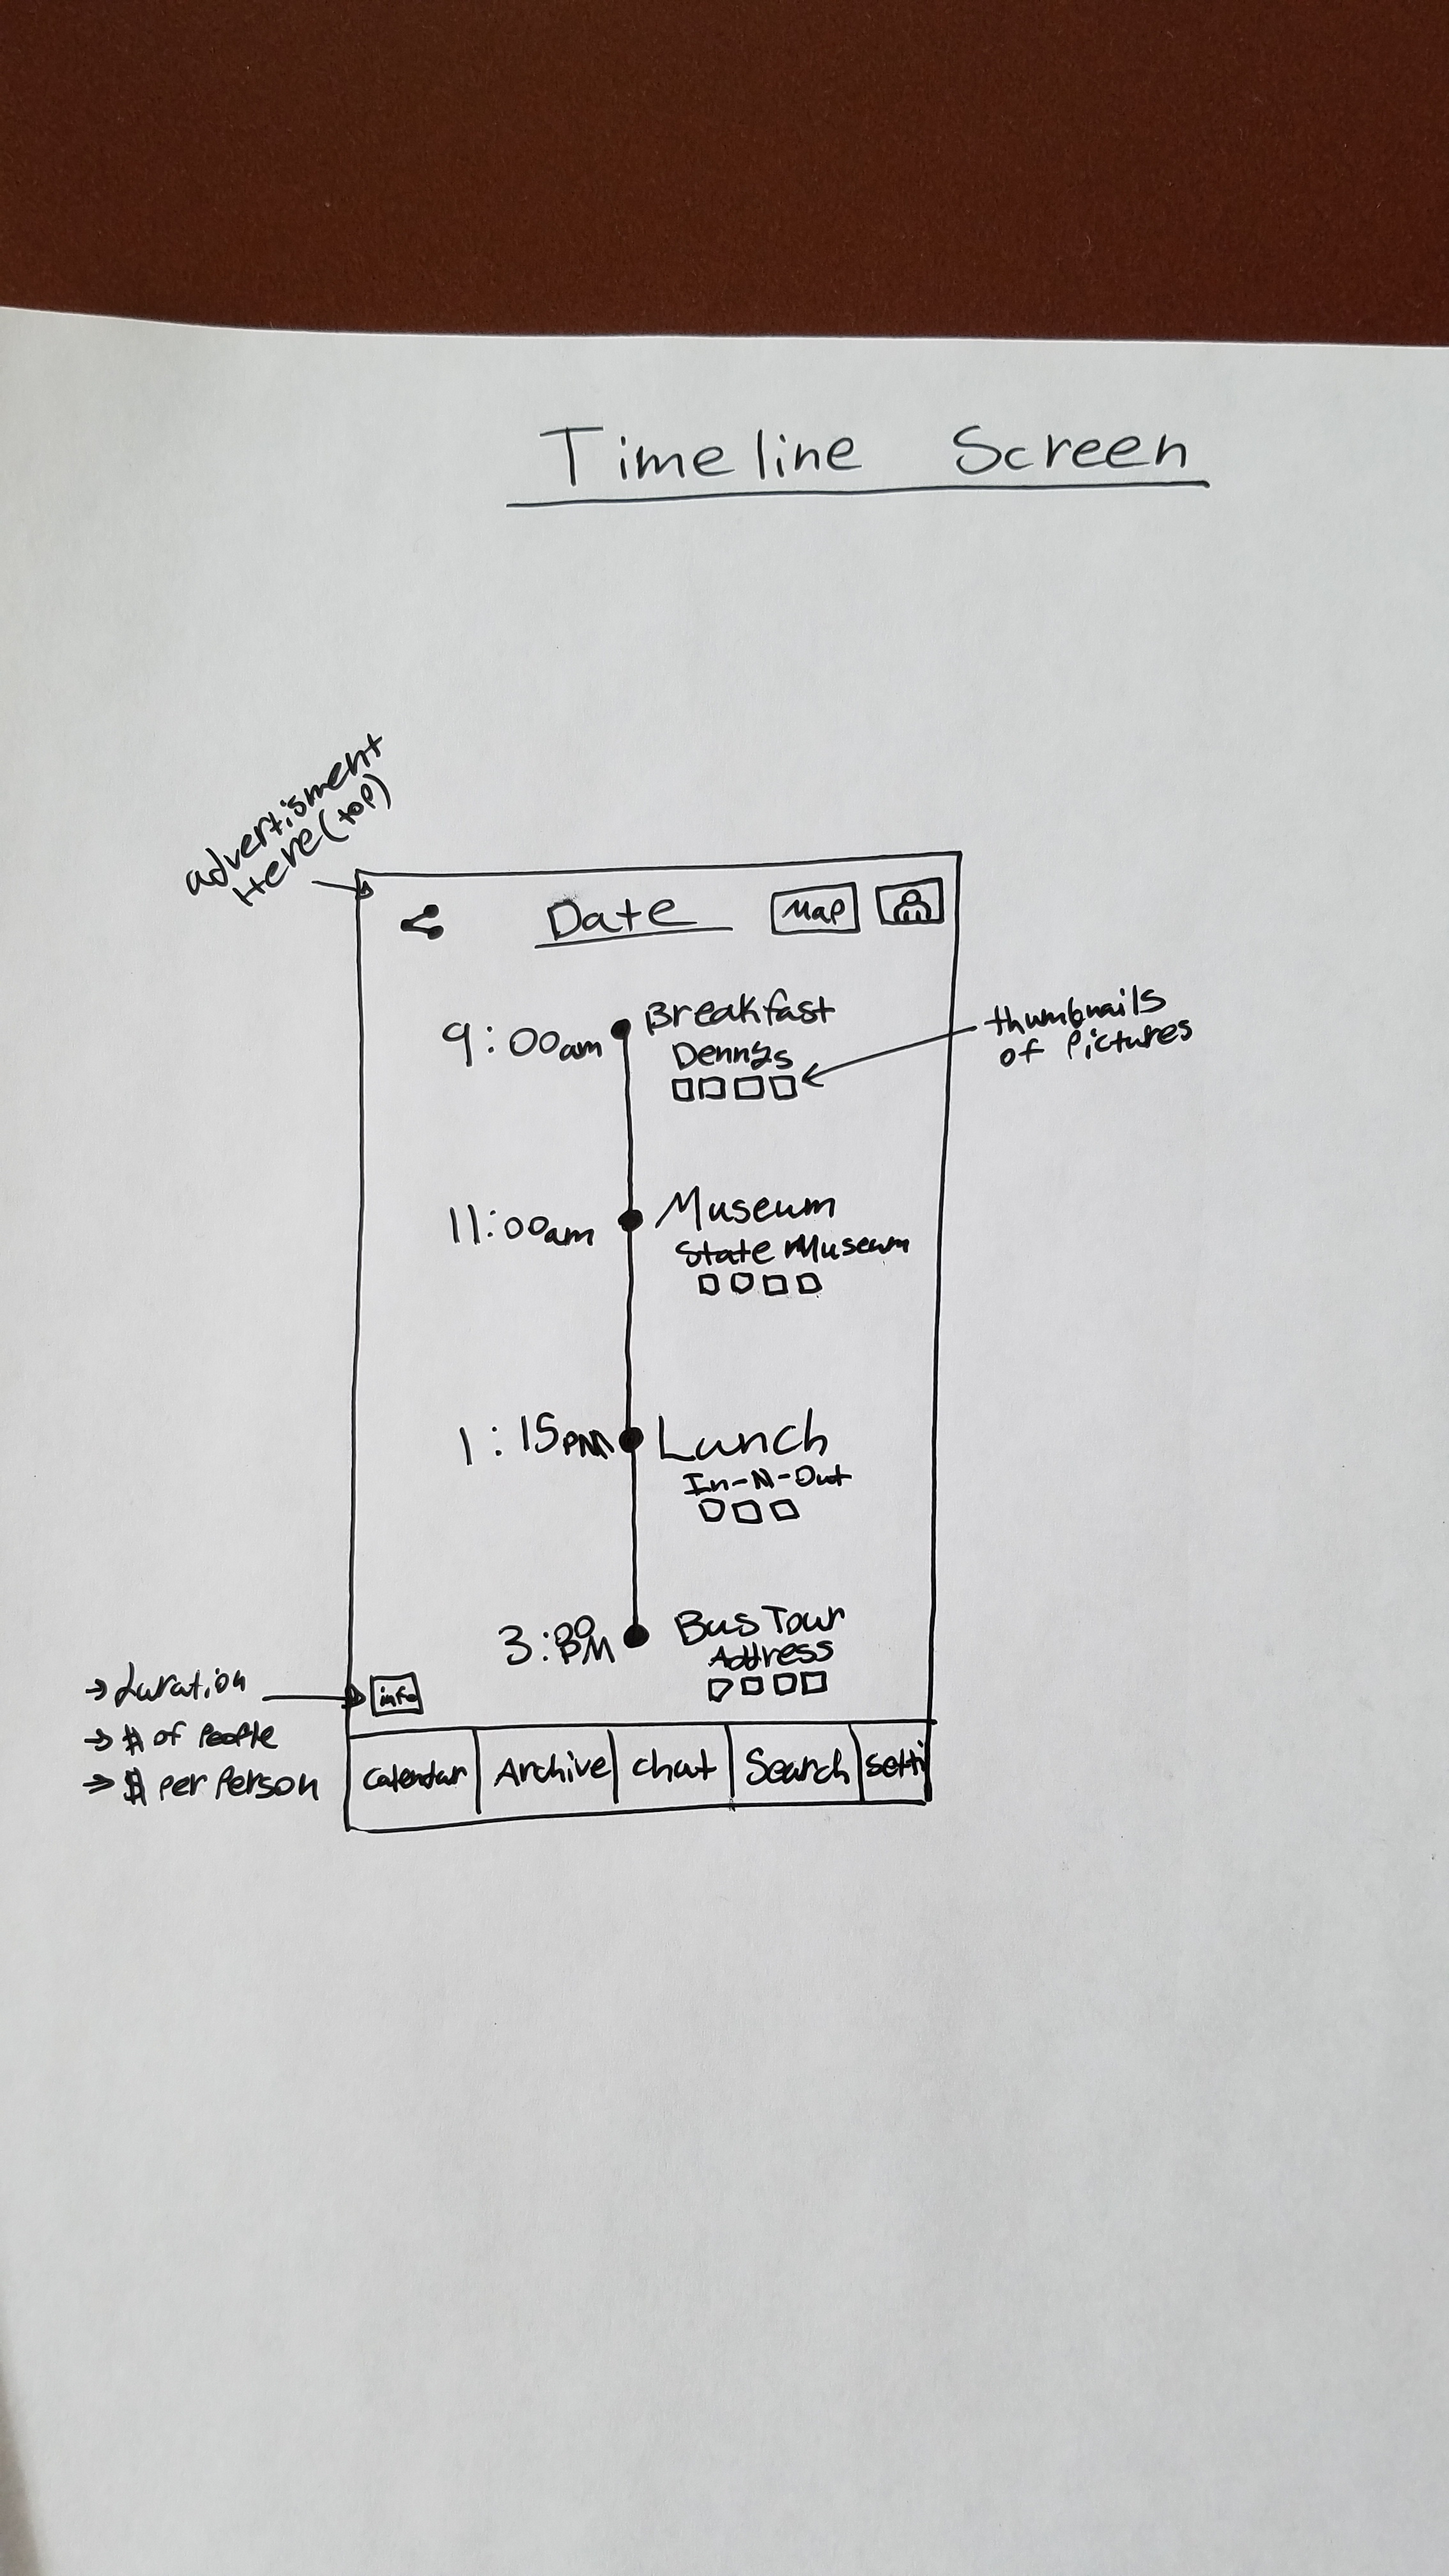 Timeline Screen
advertisment
Here (top)
Date
Map
9:00am
Breakfast
Dennys
thumbnails
of Pictures
11:00am
Museum
State Museum
1:15PM
Lunch
In-N-Out
3:00
PM
Bus Tour
Address
info
→ duration
→ # of People
→ $ per Person
Calendar
Archive
chat
Search
Setti